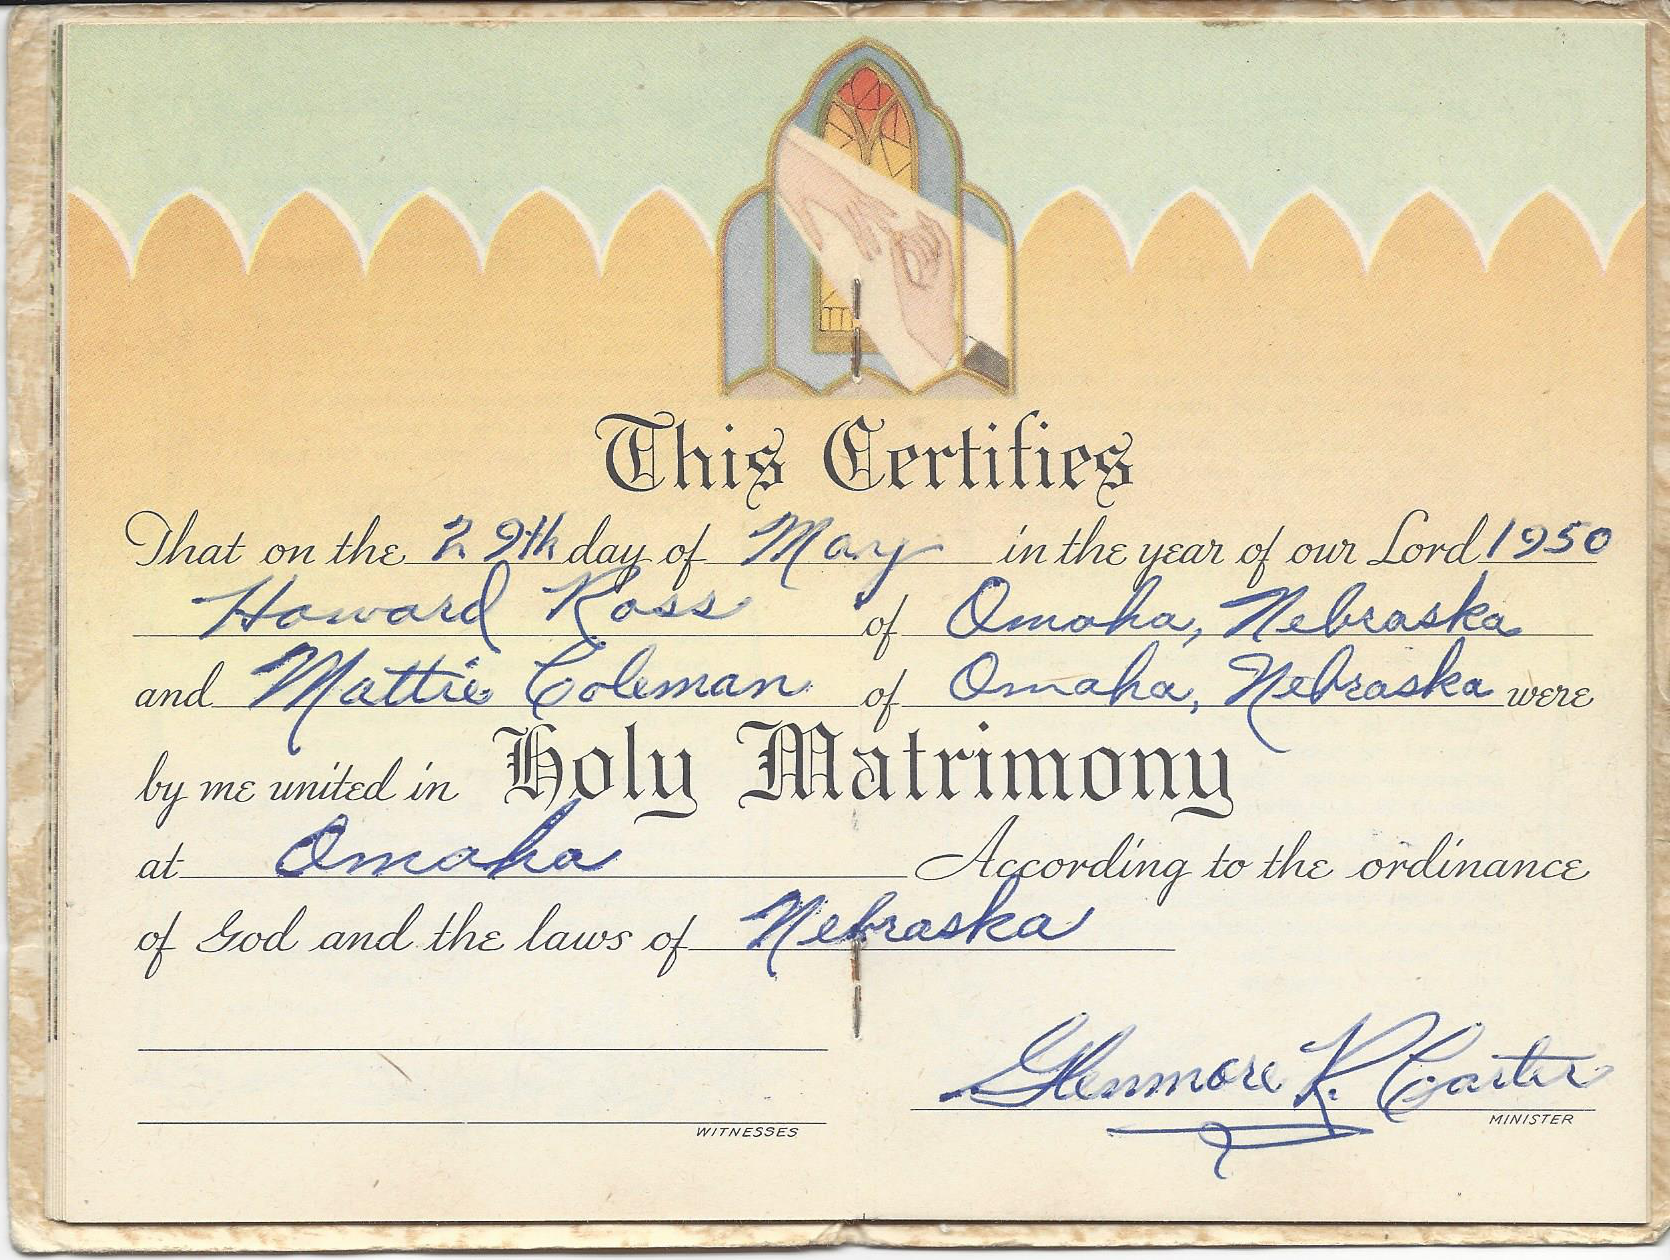 This Certifies
That on the 29th day of May in the year of our Lord 1950
Howard Ross of Omaha, Nebraska
and Mattie Coleman of Omaha, Nebraska were
by me united in Holy Matrimony
at Omaha According to the ordinance
of God and the laws of Nebraska
Glenmore K. Carter
MINISTER
WITNESSES